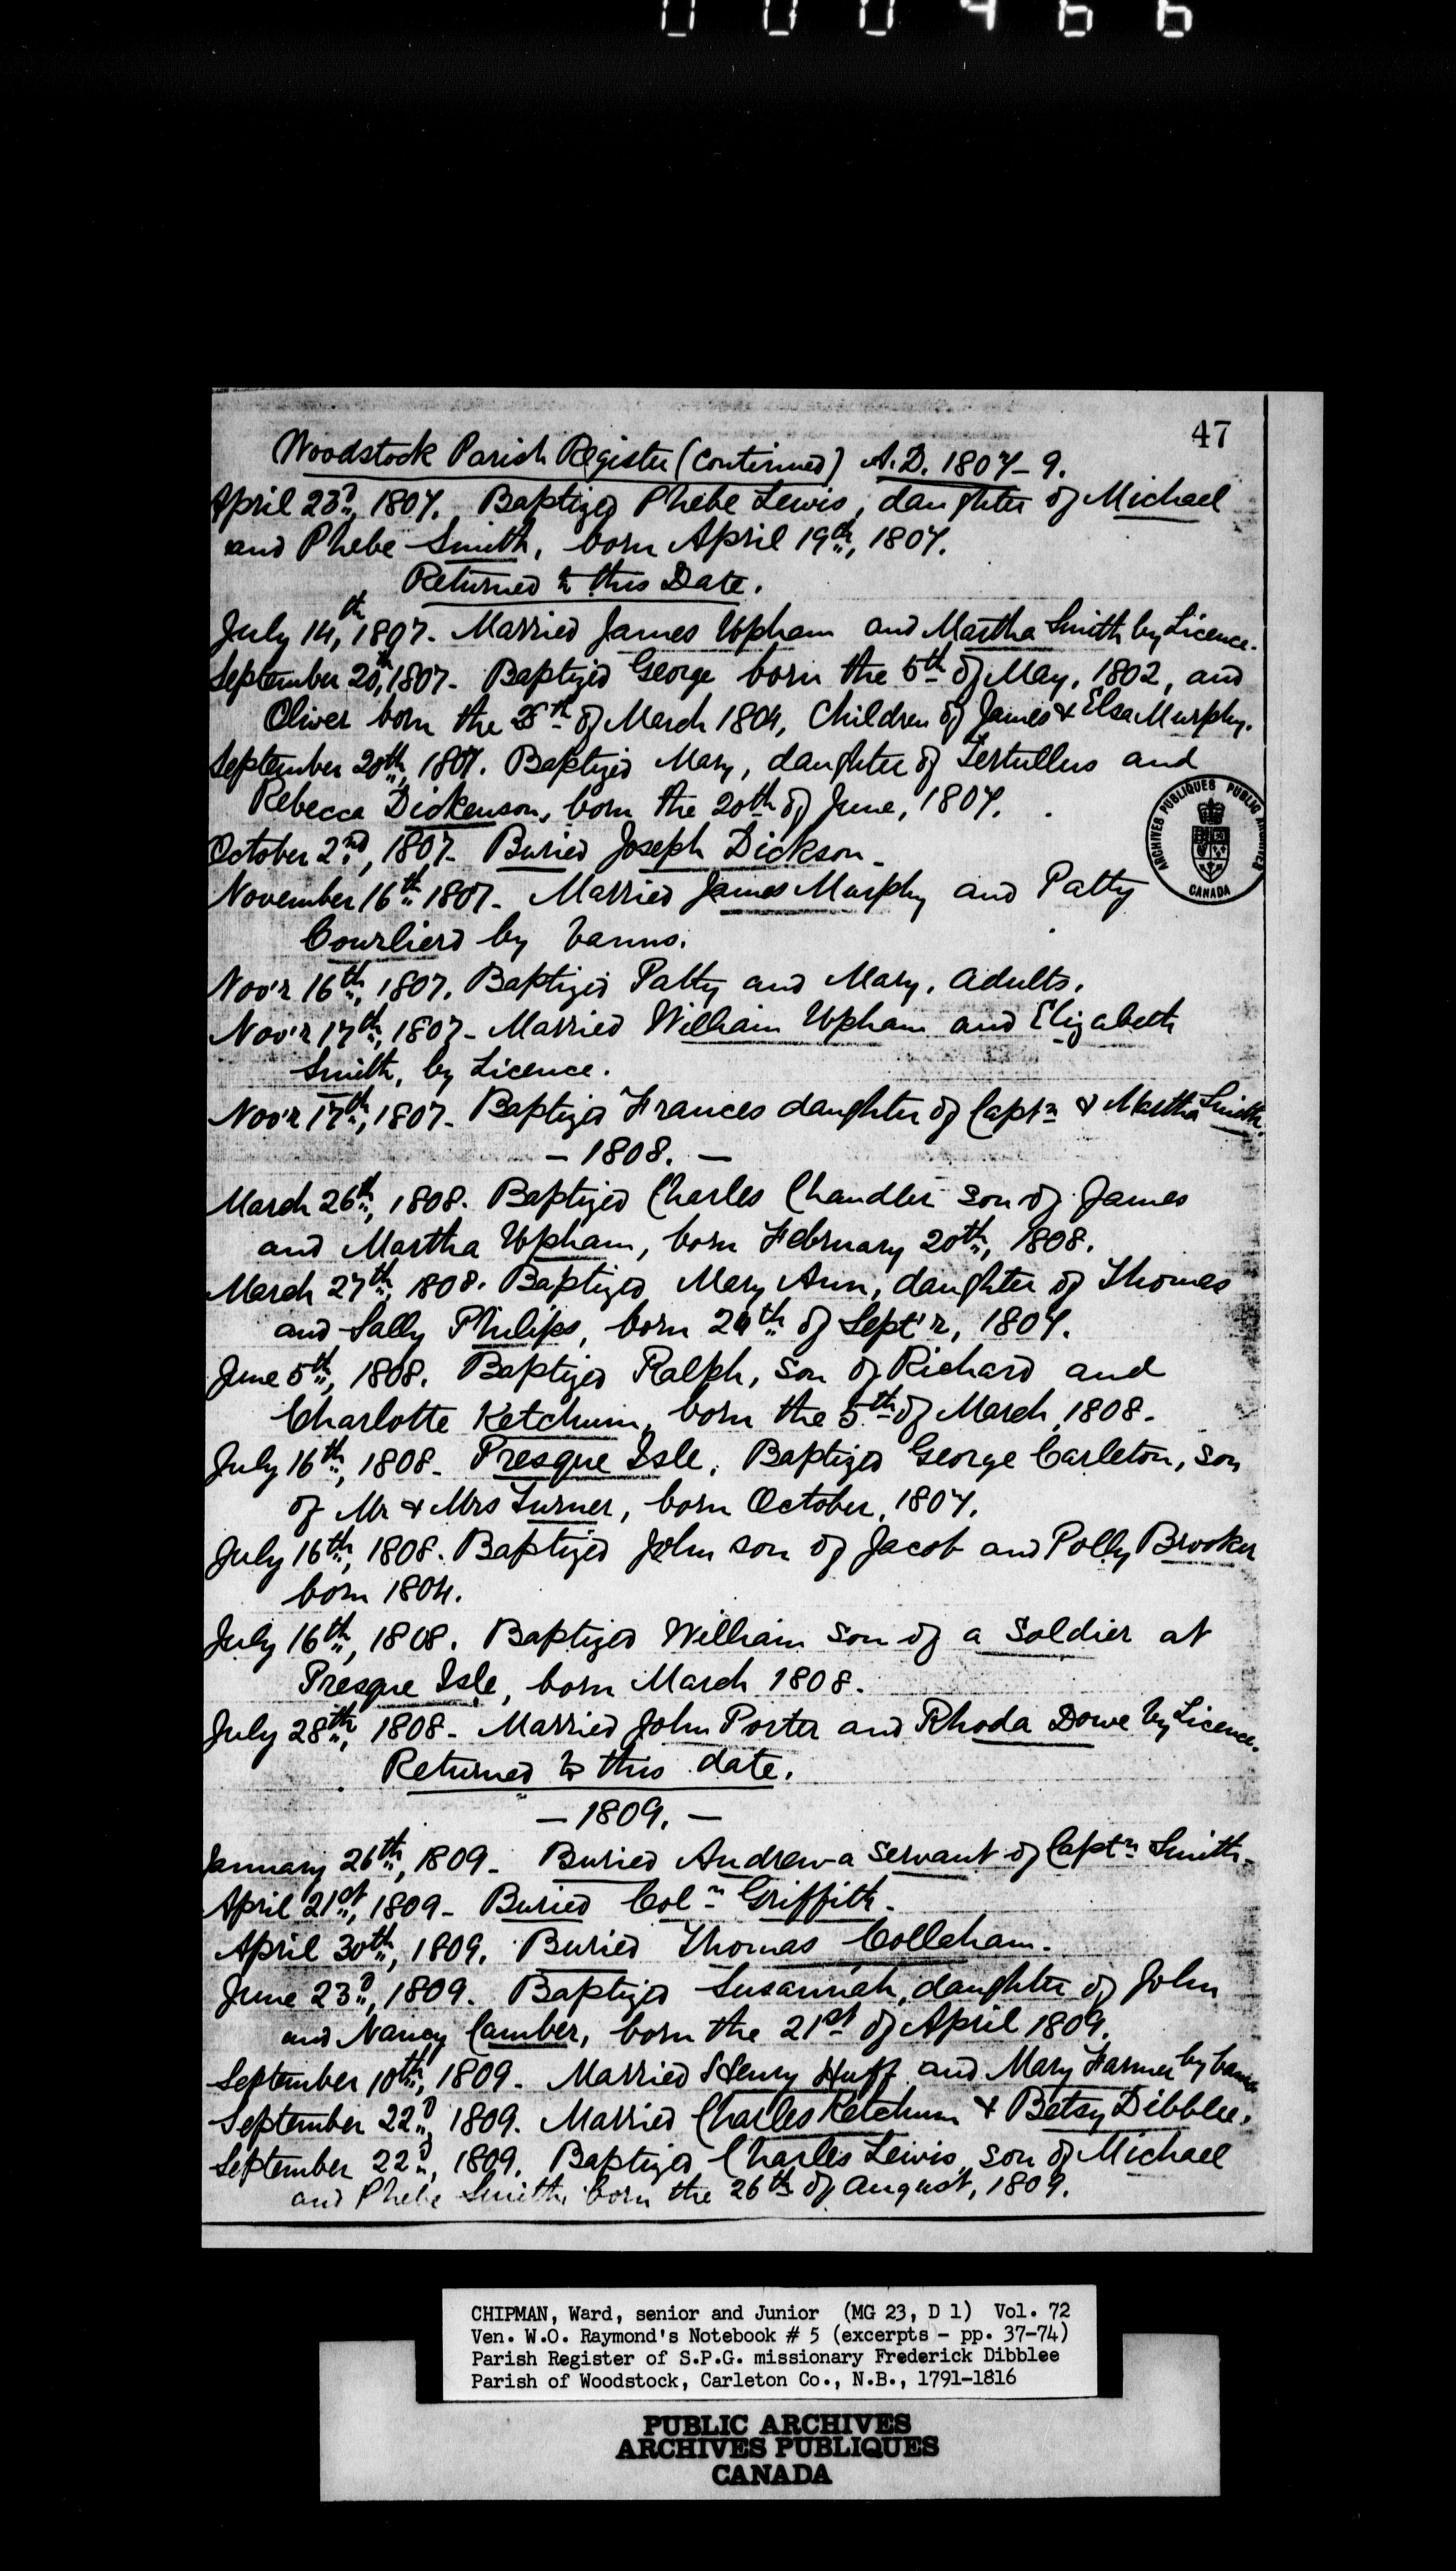 000466
47
Woodstock Parish Register (continued) A.D. 1807-9.
April 23d, 1807. Baptized Phebe Lewis, daughter of Michael
and Phebe Smith, born April 19th, 1807.
Returned to this Date.
July 14th, 1807. Married James Upham and Martha Smith by Licence.
September 20th, 1807. Baptized George born the 5th of May, 1802, and
Oliver born the 28th of March 1804, Children of James & Elsa Murphy.
September 20th, 1807. Baptized Mary, daughter of Tertullus and
Rebecca Dickenson, born the 20th of June, 1807.
October 2nd, 1807. Buried Joseph Dickson.
November 16th 1807. Married James Murphy and Patty
by banns.
Nov'r 16th, 1807. Baptized Patty and Mary, adults.
Nov'r 17th, 1807. Married William Upham and Elizabeth
Smith, by Licence.
Nov'r 17th, 1807. Baptized Frances daughter of Captn & Martha Smith.
- 1808. -
March 26th, 1808. Baptized Charles Chandler son of James
and Martha Upham, born February 20th, 1808.
March 27th, 1808. Baptized Mary Ann, daughter of Thomas
and Sally Philips, born 24th of Sept'r, 1807.
June 5th, 1808. Baptized Ralph, son of Richard and
Charlotte Ketchum, born the 5th of March, 1808.
July 16th, 1808. Presque Isle, Baptized George Carleton, son
of Mr & Mrs Turner, born October, 1807.
July 16th, 1808. Baptized John son of Jacob and Polly Brooker
born 1804.
July 16th, 1808. Baptized William son of a soldier at
Presque Isle, born March 1808.
July 28th, 1808. Married John Porter and Rhoda Dowe by Licence.
Returned to this date.
- 1809. -
January 26th, 1809. Buried Andrew a servant of Captn Smith.
April 21st, 1809. Buried Coln Griffith.
April 30th, 1809. Buried Thomas Colleham.
June 23d, 1809. Baptized Susannah, daughter of John
and Nancy Camber, born the 21st of April 1809.
September 10th, 1809. Married Henry Huff and Mary Farmer by banns
September 22d, 1809. Married Charles Ketchum & Betsy Dibblee.
September 22d, 1809. Baptized Charles Lewis, son of Michael
and Phebe Smith, born the 26th of August, 1809.
ARCHIVES PUBLIQUES PUBLIC ARCHIVES
CANADA
CHIPMAN, Ward, senior and Junior (MG 23, D 1) Vol. 72
Ven. W.O. Raymond's Notebook # 5 (excerpts - pp. 37-74)
Parish Register of S.P.G. missionary Frederick Dibblee
Parish of Woodstock, Carleton Co., N.B., 1791-1816
PUBLIC ARCHIVES
ARCHIVES PUBLIQUES
CANADA